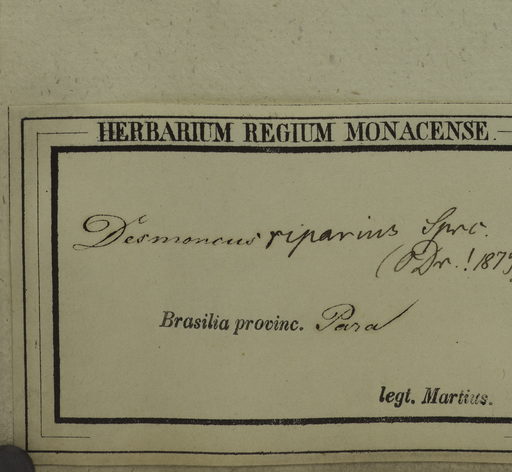 HERBARIUM REGIUM MONACENSE.
Desmoncus riparius Sprc.
(Dr.! 187
Brasilia provinc. Para
legt. Martius.